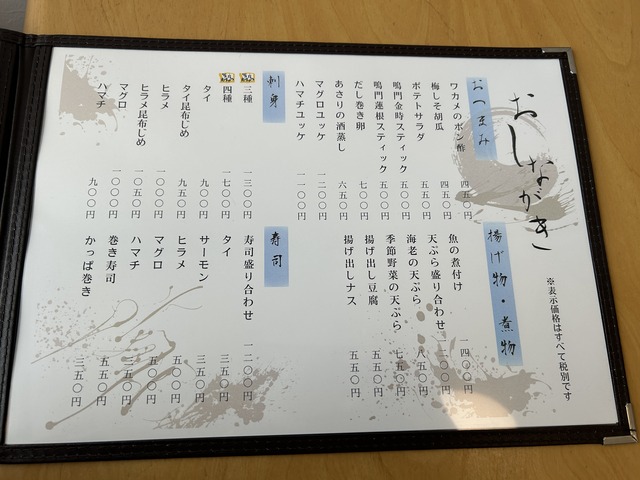 おしながき
※表示価格はすべて税別です
おつまみ
ワカメのポン酢 四五〇円
梅しそ胡瓜 四五〇円
ポテトサラダ 五五〇円
鳴門金時スティック 五〇〇円
鳴門蓮根スティック 五〇〇円
だし巻き卵 七〇〇円
あさりの酒蒸し 六五〇円
マグロユッケ 一二〇〇円
ハマチユッケ 一一〇〇円
刺身
三種 一三〇〇円
四種 一七〇〇円
タイ 九〇〇円
タイ昆布じめ 九五〇円
ヒラメ 一〇〇〇円
ヒラメ昆布じめ 一〇五〇円
マグロ 一〇〇〇円
ハマチ 九〇〇円
揚げ物・煮物
魚の煮付け 一四〇〇円
天ぷら盛り合わせ 一二〇〇円
海老の天ぷら 八五〇円
季節野菜の天ぷら 七五〇円
揚げ出し豆腐 五五〇円
揚げ出しナス 五五〇円
寿司
寿司盛り合わせ 一二〇〇円
タイ 三五〇円
サーモン 三五〇円
ヒラメ 五〇〇円
マグロ 五〇〇円
ハマチ 三五〇円
巻き寿司 五五〇円
かっぱ巻き 三五〇円